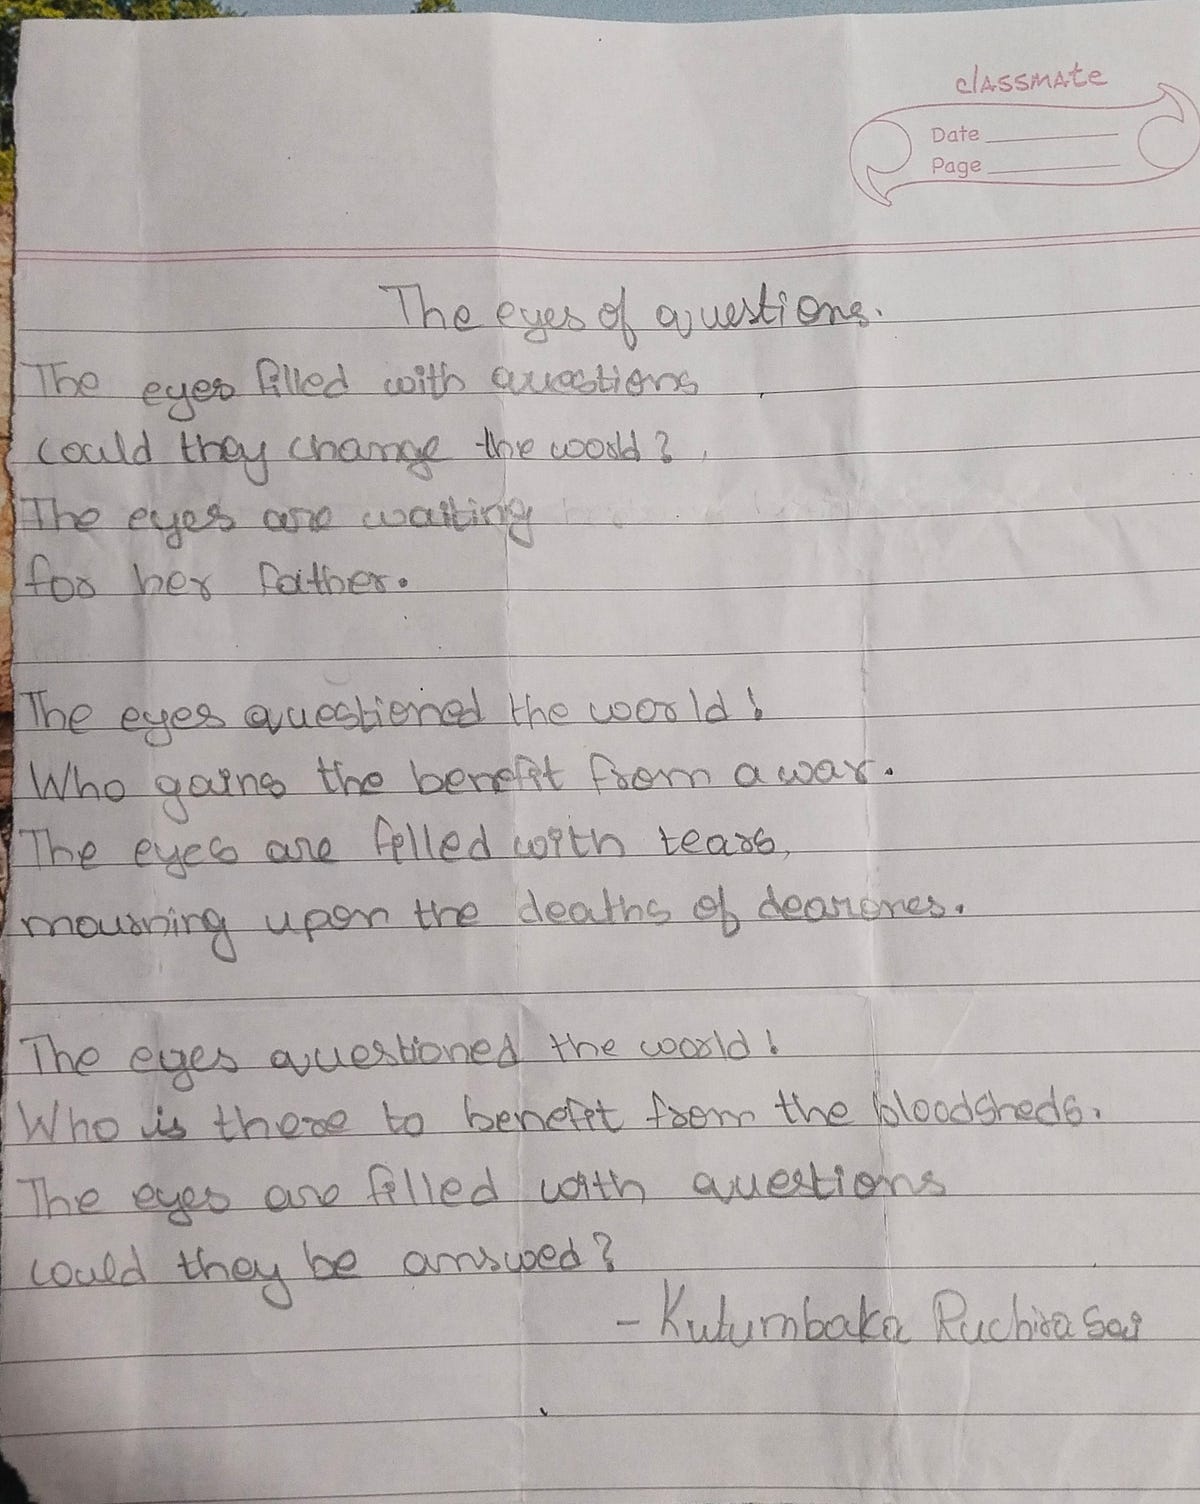 classmate
Date
Page
The eyes of questions.
The eyes filled with questions
could they change the world?
The eyes are waiting
for her father.
The eyes questioned the world!
Who gains the benefit from a war.
The eyes are filled with tears,
mourning upon the deaths of dearones.
The eyes questioned the world!
Who is there to benefit from the bloodsheds.
The eyes are filled with questions
could they be answed?
- Kutumbaka Ruchira Sai